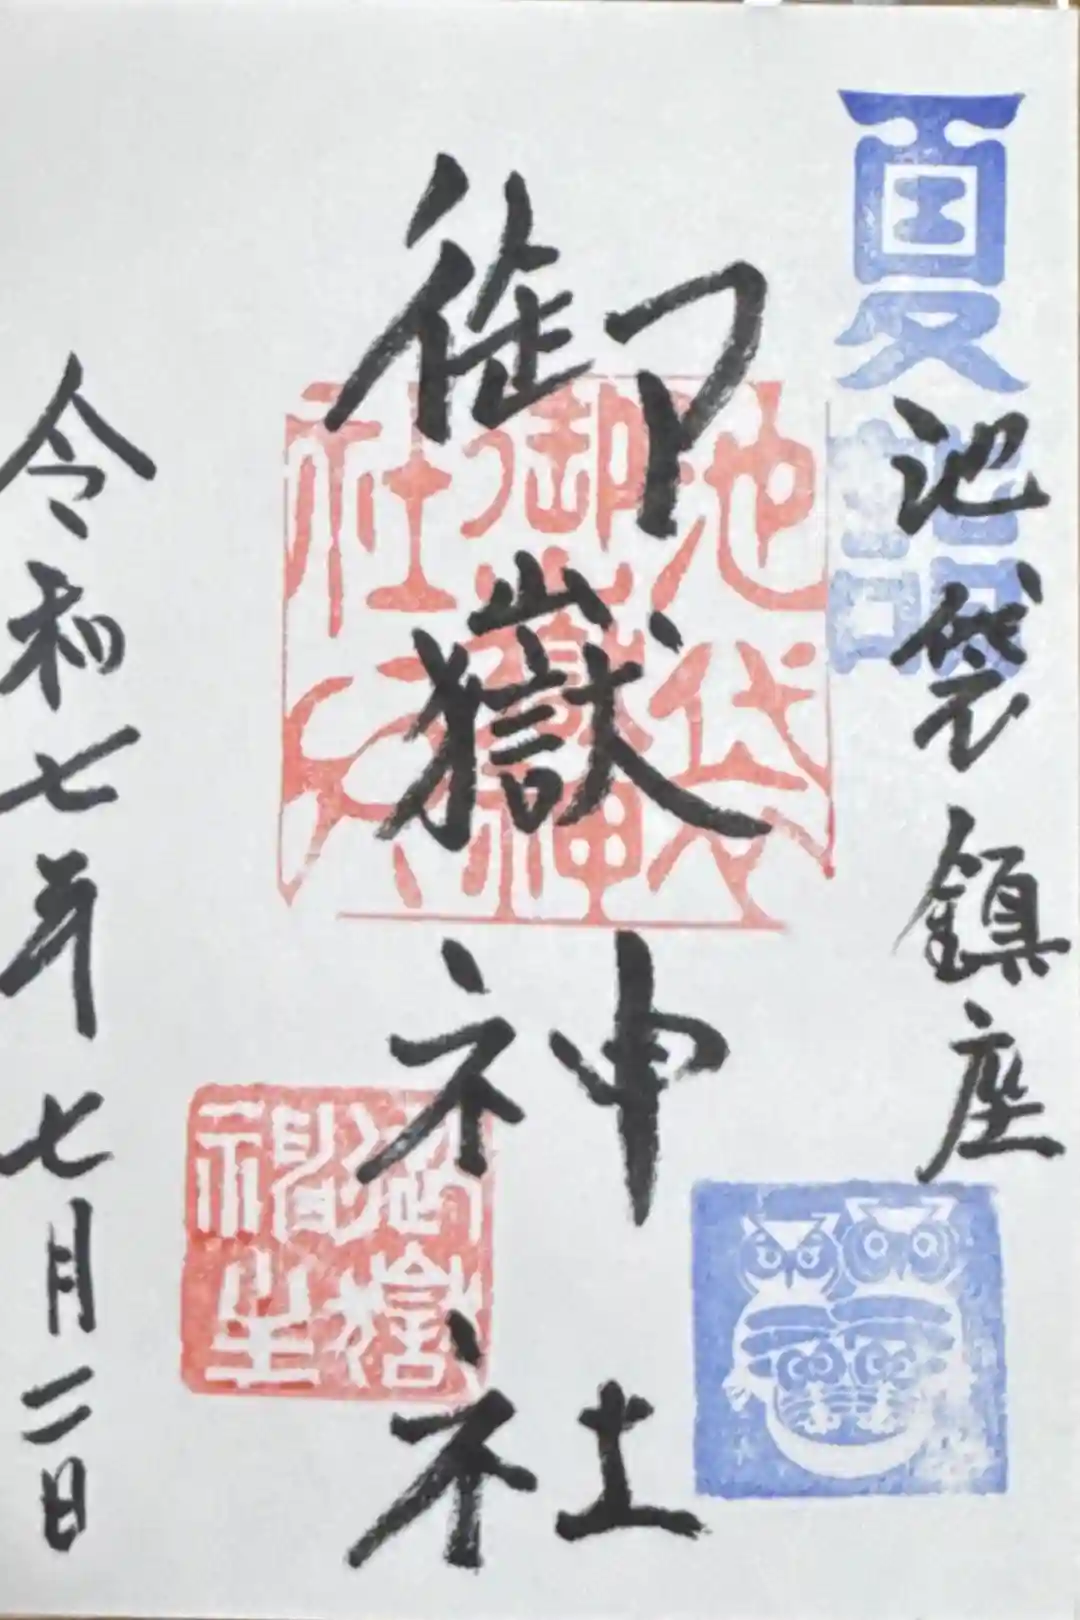 夏詣
池袋鎮座
御嶽神社
池袋
御嶽神
社
令和七年七月二日